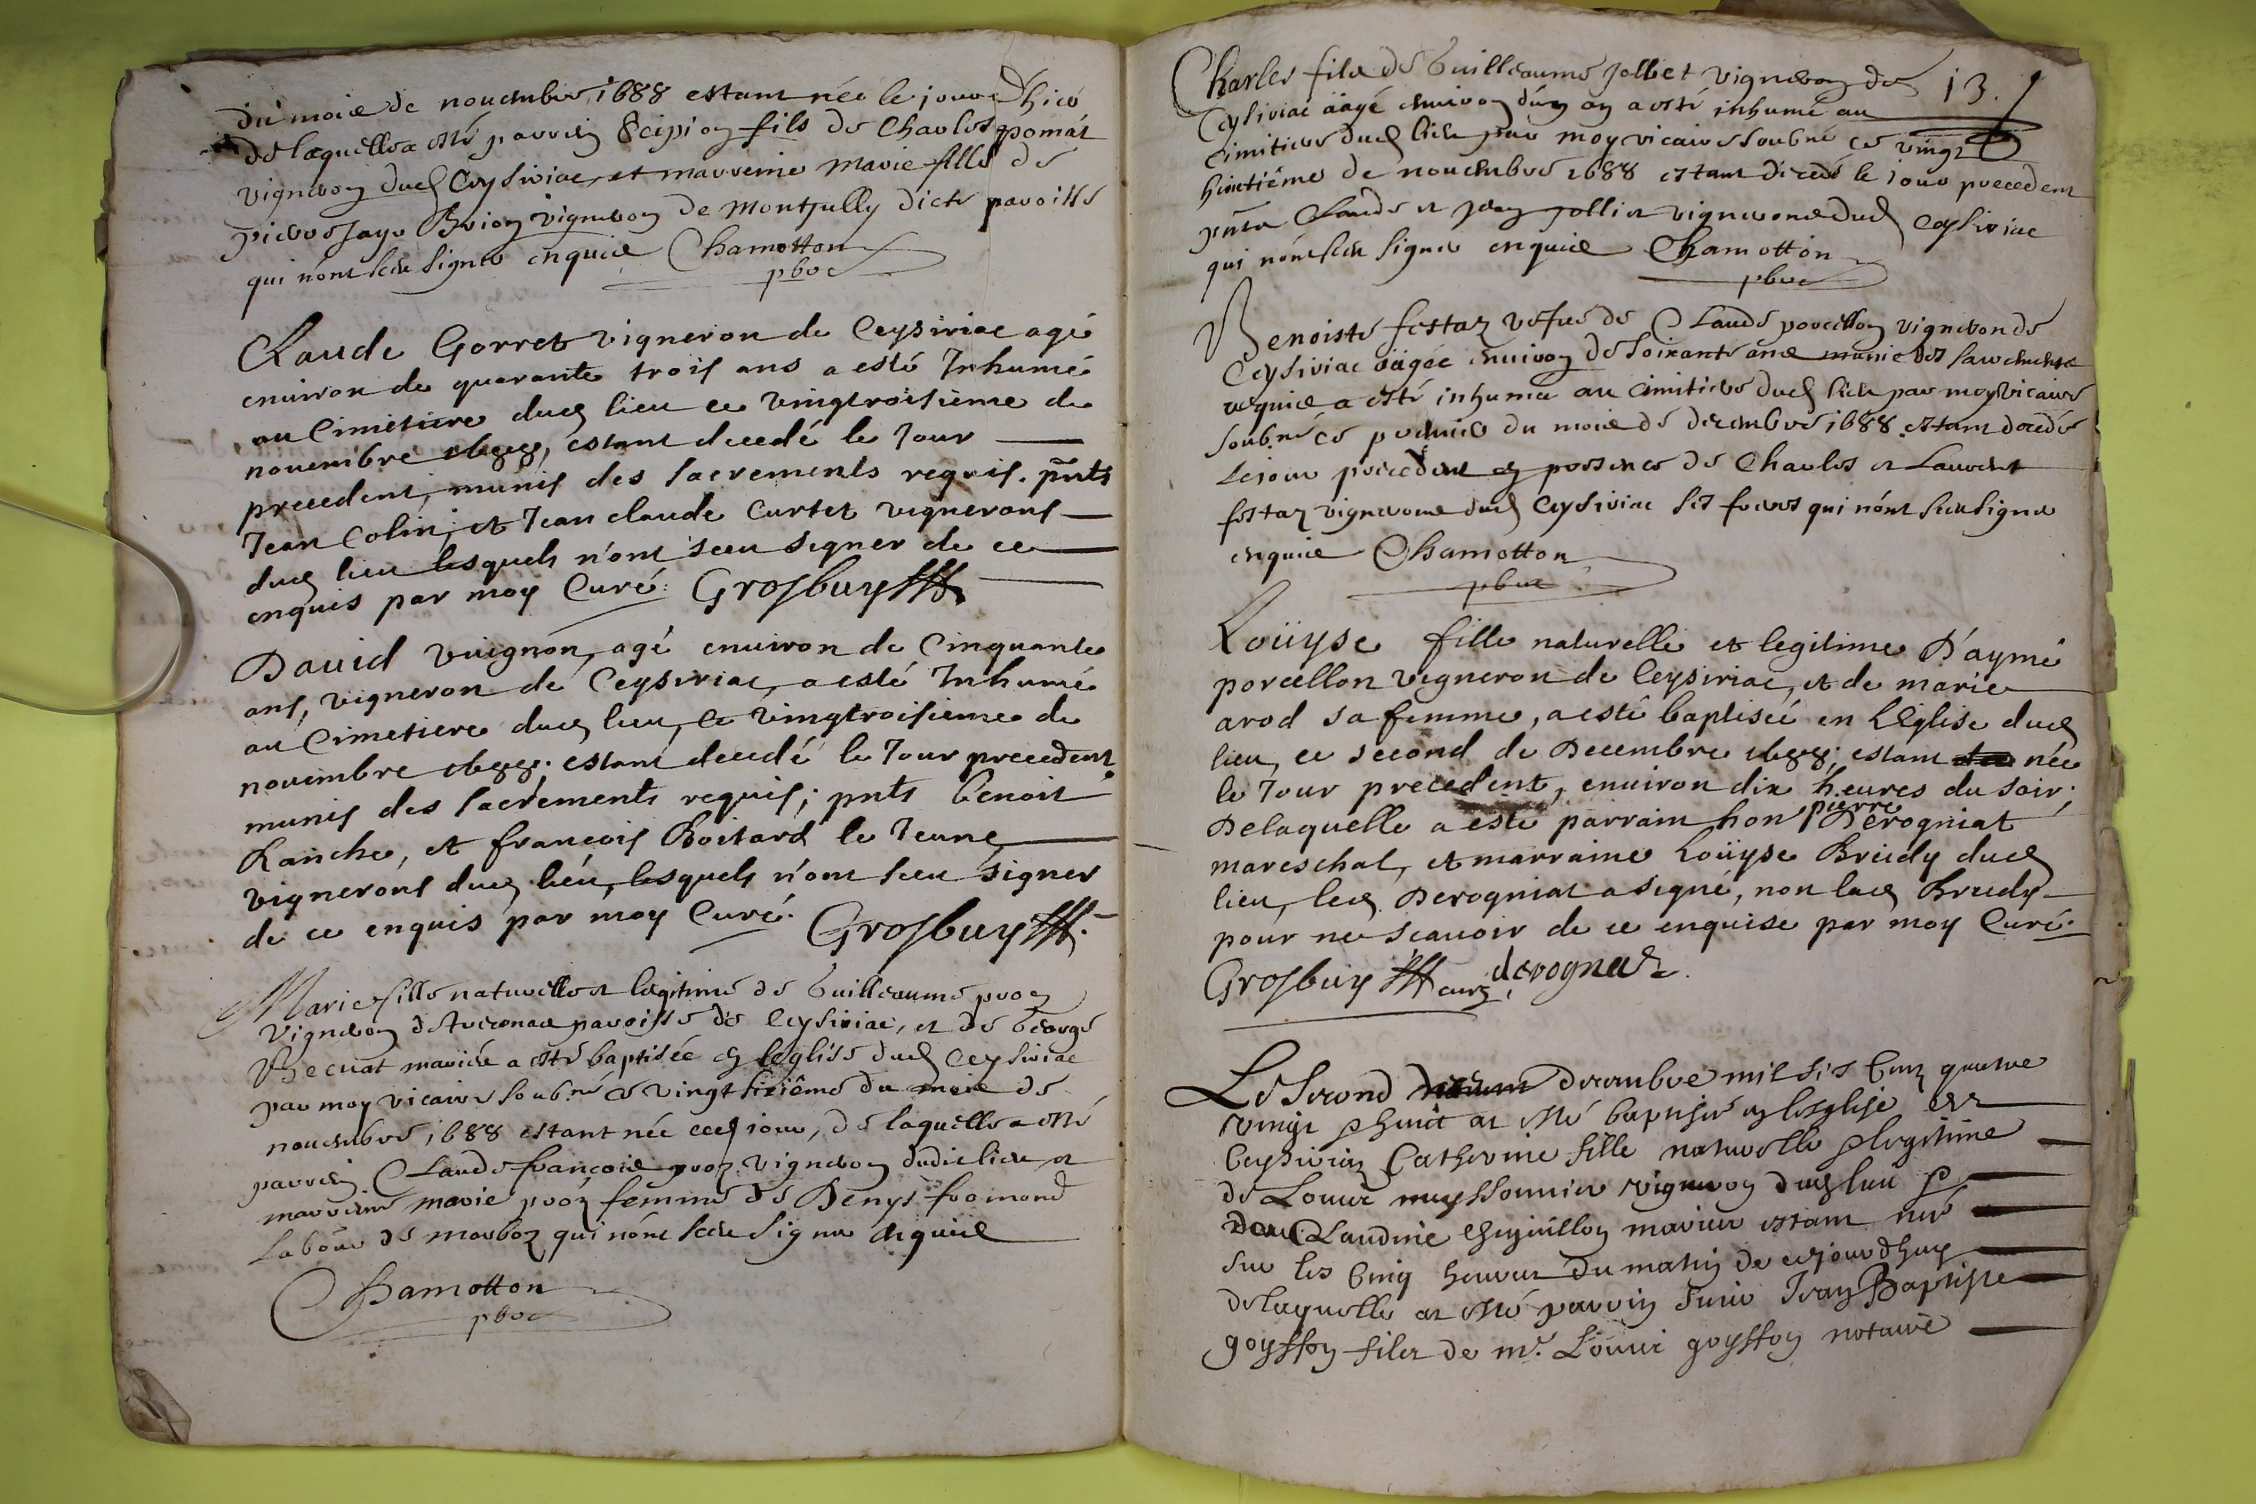 du mois de nouembre 1688 estant née le jour d'hier
de laquelle a esté parrein Scipion fils de Charles pomat
vigneron dud Ceysiriac, et marreine Marie fille de
pierre Jayr Brion vigneron de Montjully dicte paroisse
qui n'ont sceu signer enquis Chamotton
pbre
Claude Gorret vigneron de Ceysiriac agé
enuiron de quarante trois ans a esté Inhumé
au Cimetiere dud lieu ce vingtroisieme de
nouembre 1688, estant decedé le Jour
precedent, munis des sacrements requis. pnts
Jean Colin, et Jean claude Curtet vignerons
dud lieu lesquels n'ont sceu signer de ce
enquis par moy Curé. Grosbuy
Dauid vuignon, agé enuiron de Cinquante
ans, vigneron de Ceysiriac, a esté Inhumé
au Cimetiere dud lieu, ce vingtroisieme de
nouembre 1688. estant decedé le Jour precedent
munis des sacrements requis; pnts benoit
Ranche, et françois Boitard le Jeune
vignerons dud lieu, lesquels n'ont sceu signer
de ce enquis par moy Curé. Grosbuy
Marie fille naturelle et legitime de Guilleaume proz
vigneron de paroisse de Ceysiriac, et de George
Becuat mariée a esté baptisée en leglise dud Ceysiriac
par moy vicaire soubné ce vingt sixiême du mois de
nouembre 1688 estant née led jour, de laquelle a esté
parrein Claude françois proz vigneron dudic lieu et
marreine marie proz femme de Denys fromond
labour de marboz qui n'ont sceu signer enquis
Chamotton
pbre
13.
Charles fils de Guilleaume Jolliet vigneron de
Ceysiriac aàgé enuiron d'un an a esté inhumé au
Cimitiere dud lieu par moy vicaire soubné ce vingt
huictiême de nouembre 1688 estant decedé le jour precedent
pnts Claude et Jean Jolliet vignerons dud Ceysiriac
qui n'ont sceu signer enquis Chamotton
pbre
Benoiste festaz vefue de Claude porcellon vigneron de
Ceysiriac aàgée enuiron de soixante ans munie des sacrements
requis a esté inhumée au cimitiere dud lieu par moy vicaire
soubné ce premier du mois de decembre 1688 estant decedée
le jour precedent en presence de Charles et Laurent
festaz vignerons dud Ceysiriac ses freres qui n'ont sceu signer
enquis Chamotton
pbre
Loüyse fille naturelle et legitime D'aymé
porcellon vigneron de Ceysiriac, et de marie
arod sa femme, a esté baptiseé en L'Eglise dud
lieu, ce second de Decembre 1688; estant née
le Jour precedent, enuiron dix heures du soir;
Delaquelle a esté parrain hon pierre Derogniat
mareschal, et marraine Loüyse Bredy dud
lieu, led. Derogniat a signé, non lad Bredy
pour ne scauoir de ce enquise par moy Curé.
Grosbuy curé, derognat
Le second decembre mil six Cent quatre
vingt et huict at esté baptisé en lesglise de
Ceysiriaz Catherine fille naturelle et legitime
de Louis muyssonnier vigneron dud lieu et
de Claudine mariez estant née
sur les Cinq heures du matin de cejourdhuy
delaquelle at esté parrin sieur Jean Baptiste
goyffon filz de mr. Louis goyffon notaire